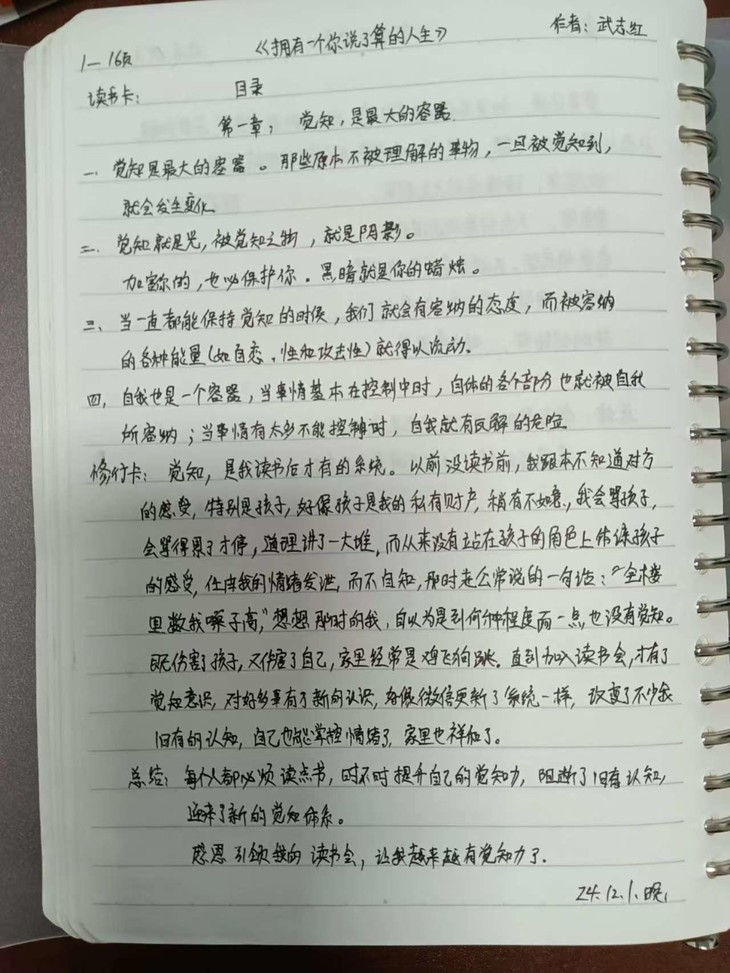 1—16页 《拥有一个你说了算的人生》 作者：武志红
读书卡： 目录
第一章： 觉知，是最大的容器.
一、觉知是最大的容器。那些原本不被理解的事物，一旦被觉知到，
就会发生变化
二、觉知就是光，被觉知之物，就是阴影。
加害你的，也必保护你。黑暗就是你的蜡烛。
三、当一直都能保持觉知的时候，我们就会有容纳的态度，而被容纳
的各种能量(如自恋、性和攻击性)就得以流动.
四、自我也是一个容器，当事情基本在控制中时，自体的各个部分也就被自我
所容纳；当事情有太多不能控制时，自我就有瓦解的危险
修行卡：觉知，是我读书后才有的系统。以前没读书前，我跟本不知道对方
的感受，特别是孩子，好像孩子是我的私有财产，稍有不如意，我会骂孩子，
会骂得累了才停，道理讲了一大堆，而从来没有站在孩子的角色上体谅孩子
的感受，任由我的情绪发泄，而不自知，那时老公常说的一句话：“全楼
里数我嗓子高，”想想那时的我，自以为是到何种程度而一点也没有觉知。
既伤害了孩子，又伤害了自己，家里经常是鸡飞狗跳. 直到加入读书会，才有了
觉知意识，对好多事有了新的认识，好像微信更新了系统一样，改变了不少我
旧有的认知，自己也能掌控情绪了，家里也祥和了。
总结：每个人都必须读点书，时不时提升自己的觉知力，阻断了旧有认知，
迎来了新的觉知体系。
感恩引领我的读书会，让我越来越有觉知力了.
24.12.1.晚